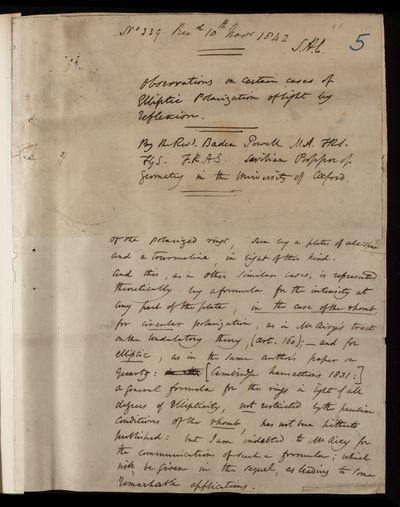 No 339 Recd 10th Novr 1842
S.H.C.
5
Observations on certain cases of
Elliptic Polarization of light by
reflexion.
By the Revd. Baden Powell M.A. F.R.S.
F.G.S. F.R.A.S. Savilian Professor of
Geometry in the University of Oxford
of the polarized rings, seen by a plate of calc spar
and a tourmaline, in light of this kind.
And this, as in other similar cases, is represented
theoretically by a formula for the intensity at
any part of the plate, in the case of the rhomb,
for circular polarization, as in Mr Airy's tract
on the Undulatory theory, (Art. 160); — and for
elliptic, as in the same author's paper on
quartz: [Cambridge transactions 1831:]
a general formula for the rings in light of all
degrees of ellipticity, not restricted by the peculiar
conditions of the rhomb, has not been hitherto
published: but I am indebted to Mr Airy for
the communication of such a formula; which
will be given in the sequel, as leading to some
remarkable applications.